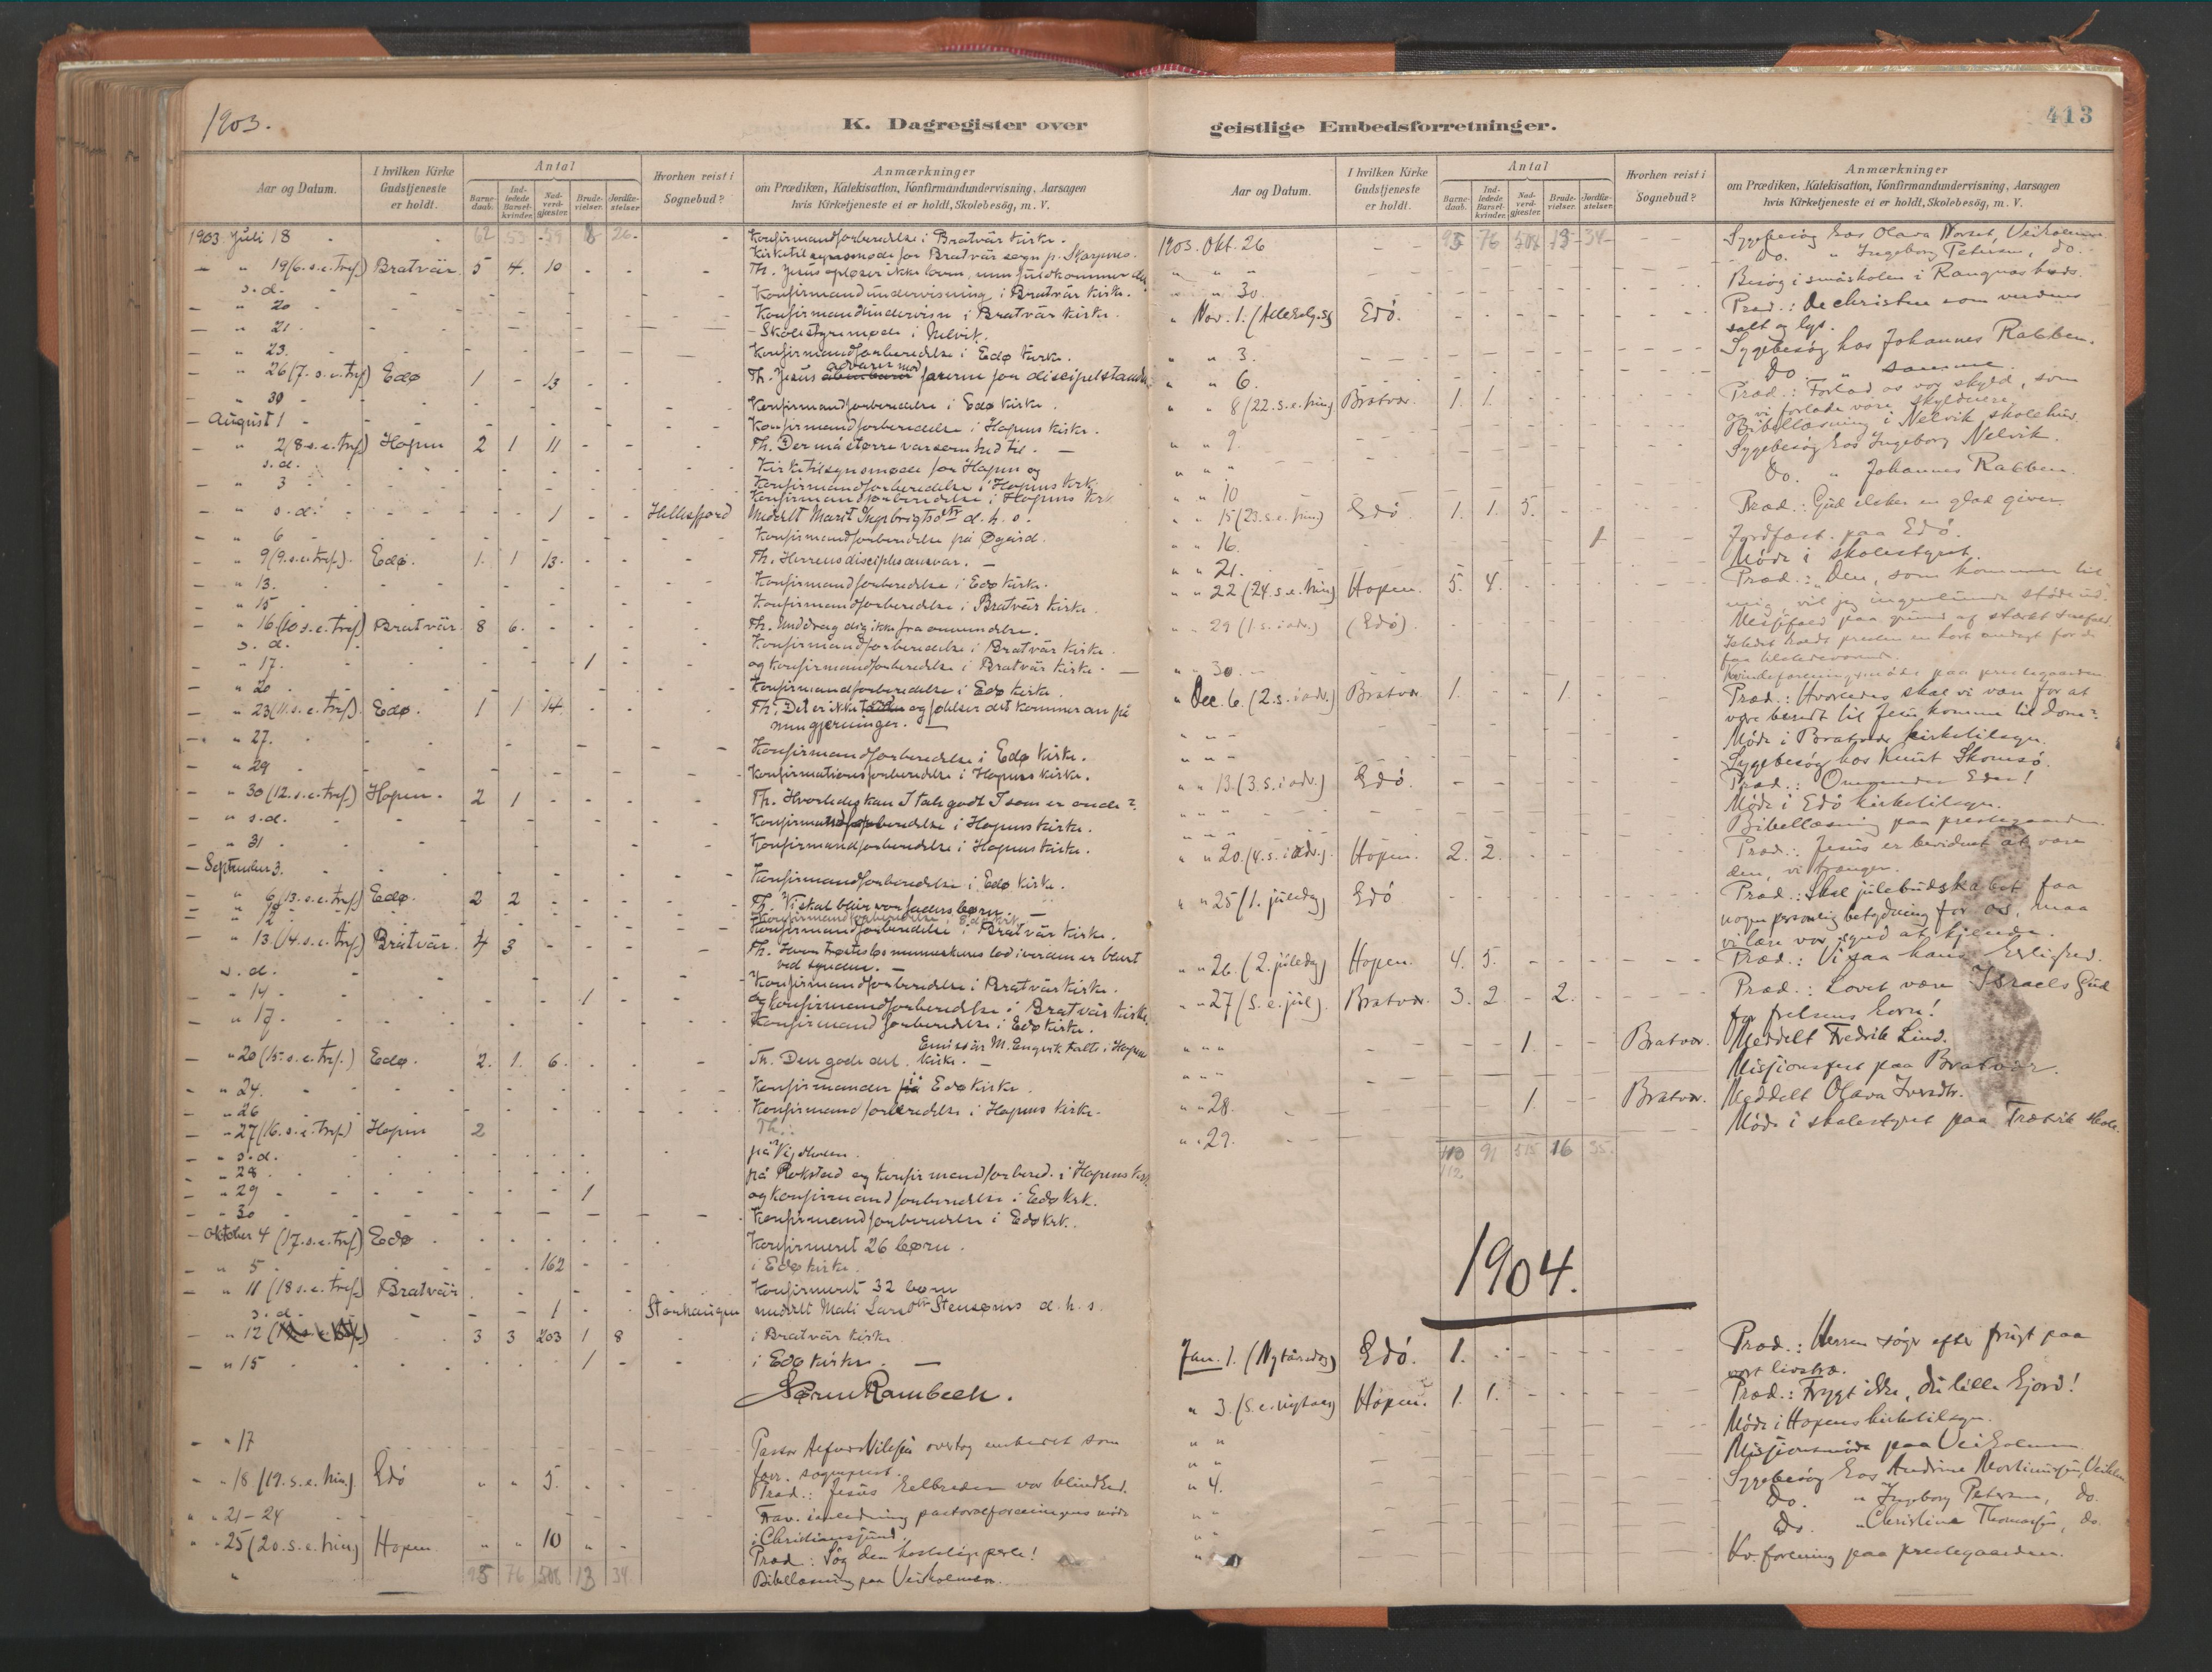 1903.
K. Dagregister over
Aar og Datum.
I hvilken Kirke Gudstjeneste er holdt.
Antal
Barnedaab.
Indledede Barselkvinder.
Nadverdgjester.
Brudevielser.
Jordfæstelser
Hvorhen reist i Sognebud?
Anmærkninger
om Prædiken, Katekisation, Konfirmandundervisning, Aarsagen
hvis Kirketjeneste ei er holdt, Skolebesög, m. V.
1903 Juli 18 62 53 59 8 26 Konfirmandforberedelse i Bratvär kirke.
Kirketilsynsmøde for Bratvär sogn p. Skarpnes.
" 19 (6. s. e. tref) Bratvär. 5 4. 10 Th. Jesus opløser ikke loven, men fuldkommer den
s. d. Konfirmandundervisning i Bratvär kirke.
" 20 Konfirmandundervisn i Bratvär kirke.
" 21. Skolestyremøde i Nelvik.
" 23. Konfirmandforberedelse i Edø kirke.
" 26 (7. s. e. tref) Edø 1 - 13 Th. Jesus advarer mod farerne for discipelstanden
" 30 Konfirmandforberedelse i Edø kirke.
August 1 Konfirmandforberedelse i Hopens kirke.
" 2 (8 s. e. tref) Hopen 2 1 11 Th. Der må større varsomhed til.
s. d. Kirketilsynsmøde for Hopen og
Konfirmandforberedelse i Hopens kirk.
" 3 Konfirmandforberedelse i Hopens kirk.
" s. d. 1 Hellesfjord Meddelt Marit Ingebrigtsdtr d. h. s.
" 6 Konfirmandforberedelse på Øgård.
" 9 (9. s. e. tref.) Edø. 1. 1 13. Th. Herrens disciples ansvar.
" 13. Konfirmandforberedelse i Edø kirke.
" 15 Konfirmandforberedelse i Bratvär kirke.
" 16. (10 s. e. tref) Bratvär. 8 6. Th. Unddrag dig ikke fra omvendelse.
s. d. Konfirmandforberedelse i Bratvär kirke.
" 17. 1 og konfirmandforberedelse i Bratvär kirke.
" 20 Konfirmandforberedelse i Edø kirke.
" 23 (11. s. e. tref). Edø. 1 1 14. Th. Det er ikke og følelser det kommer an på
men gjerninger.
" 27. Konfirmandforberedelse i Edø kirke.
" 29 Konfirmationsforberedelse i Hopens kirke.
" 30 (12. s. e. tref) Hopen. 2 1 Th. Hvorledes kan I tale godt I som er onde?
" s. d. Konfirmandforberedelse i Hopens kirke.
" 31 Konfirmandforberedelse i Hopens kirke.
September 3. Konfirmandforberedelse i Edø kirke.
" 6 (13. s. e. tref) Edø. 2 2 Th. Vi skal blive vor faders børn
" 12 Konfirmandforberedelse i Bratvär kirke.
" 13. (14. s. e. tref) Bratvär. 4 3 Th. Hvor menneskenes lod i verden er blevet
ved synden.
s. d. Konfirmandforberedelse i Bratvär kirke.
" 14 1 og konfirmandforberedelse i Bratvär kirke.
" 17. Konfirmandforberedelse i Edø kirke.
Emissär M. Engvik talte i Hopen
" 20 (15. s. e. tref.) Edø. 2. 1. 6. Th. Den gode del. kirke.
" 24. Konfirmander i Edø kirke.
" 26 Konfirmandforberedelse i Hopens kirke.
" 27 (16. s. e. tref) Hopen 2 Th.:
" s. d. på Vejholmen.
" 28 på Rokstad og konfirmandforbered. i Hopens kirk
" 29 1 og konfirmandforberedelse i Edø krk.
" 30 Konfirmandforberedelse i Edø krk.
Oktober 4 (17. s. e. tref) Edø Konfirmeret 26 børn.
" 5 162 i Edø kirke.
" 11 (18 s. e. tref) Bratvär Konfirmeret 32 børn
s. d. 1 Stenhaugen meddelt Mali Larsdtr Stensønes d. h. s.
" 12 3 3 203 1 8 i Bratvär kirke
" 15 1 i Edø kirke.
Søren Rambech.
" 17 Pastor Nilssen overtog embedet som
" 18 (19. s. e. trin) Edö " " 5. fung. sogneprest.
Præd.: Jesus helbreder vor blindhed.
" 21-24 Frav. i anledning pastoralforeningens møde
i Christiansund.
" 25 (20. s. e. trin) Hopen " " 10 " Præd.: Søg den kostelige perle!
" 95 76 508 13 34 Bibellæsning paa Veiholmen.
geistlige Embedsforretninger.
413
Aar og Datum.
I hvilken Kirke Gudstjeneste er holdt.
Antal
Barnedaab.
Indledede Barselkvinder.
Nadverdgjester.
Brudevielser.
Jordfæstelser.
Hvorhen reist i Sognebud?
Anmærkninger
om Prædiken, Katekisation, Konfirmandundervisning, Aarsagen
hvis Kirketjeneste ei er holdt, Skolebesög, m. V.
1903. Okt. 26 95 76 508 13 34 Sygebesøg hos Olava Norset, Veiholmen
" " " Do. " Ingeborg Petersen, do.
" " 30. Besøg i småskolen i Rangnes kreds.
" Nov. 1. (Allehelg.) Edö. Præd.: De christne som verdens
salt og lys.
" " 3. Sygebesøg hos Johannes Rabben.
" " 6. Do. " samme.
" " 8 (22. s. e. trin) Bratvær. 1. 1. Præd.: Forlad os vor skyld, som
og vi forlade vore skyldnere.
" " 9. Bibellæsning i Nelvik skolehus.
" " " Sygebesøg hos Ingeborg Nelvik.
" " 10 Do. " Johannes Rabben.
" " 15 (23. s. e. trin) Edö. 1. 1. 5. Præd.: Gud elsker en glad giver.
" " 16. 1 Jordfæst. paa Edö.
" " 21. Møde i skolestyret.
" " 22 (24. s. e. trin) Hopen. 5. 4. Præd.: "Den, som kommer til
mig, vil jeg ingenlunde støde ud.
" " 29 (1. s. i adv.) (Edö). Messefald paa grund af stærkt snefald.
Istedet holdt presten en kort andagt for de
faa tilstedeværende.
" " 30. Kvindeforeningsmøde paa prestegaarden.
" Dec. 6. (2. s. i adv.) Bratvær 1. 1. Præd.: Hvorledes skal vi være for at
være beredt til Jesu komme til dom?
" " " Møde i Bratvær kirketilsyn.
" " " Sygebesøg hos Knut Skomsö.
" " 13. (3. s. i adv.) Edö Præd.: Omvender Eder!
" " " Møde i Edö kirketilsyn.
" " " Bibellæsning paa prestegaarden.
" " 20. (4. s. i adv.). Hopen. 2. 2. Præd.: Jesus er bevidnet at være
den, vi trænger.
" " 25 (1. juledag) Edö Præd.: Skal julebudskabet faa
nogen personlig betydning for os, maa
vi lære vor synd at kjende.
" " 26. (2. juledag) Hopen. 4. 5. Præd.: Vi saa hans herlighed.
" " 27 (s. e. jul). Bratvær. 3. 2. 2. Præd.: Lovet være Israels Gud
for frelsens horn!
" " " 1. Bratvær. Meddelt Fredrik Lind.
" " " Misjonsfest paa Bratvær.
" " 28. 1. Bratvær. Meddelt Olava Iversdtr.
" " 29. Møde i skolestyret paa Trætvik skole.
110 91 515 16 35
112
1904.
Jan. 1. (Nytårsdag) Edö. 1. Præd.: Herren søger efter frugt paa
vort livstræ.
" 3. (s. e. nytaar) Hopen. 1. 1. Præd.: Frygt ikke, du lille hjord!
Møde i Hopens kirketilsyn.
" " Misjonsmøde paa Veiholmen
" " Sygebesøg hos Andrine Mortinusen, Veiholm
" 4. Do. " Ingeborg Petersen, do.
" " Do. " Christine Thomassen, do.
" Kv.forening paa prestegaarden.